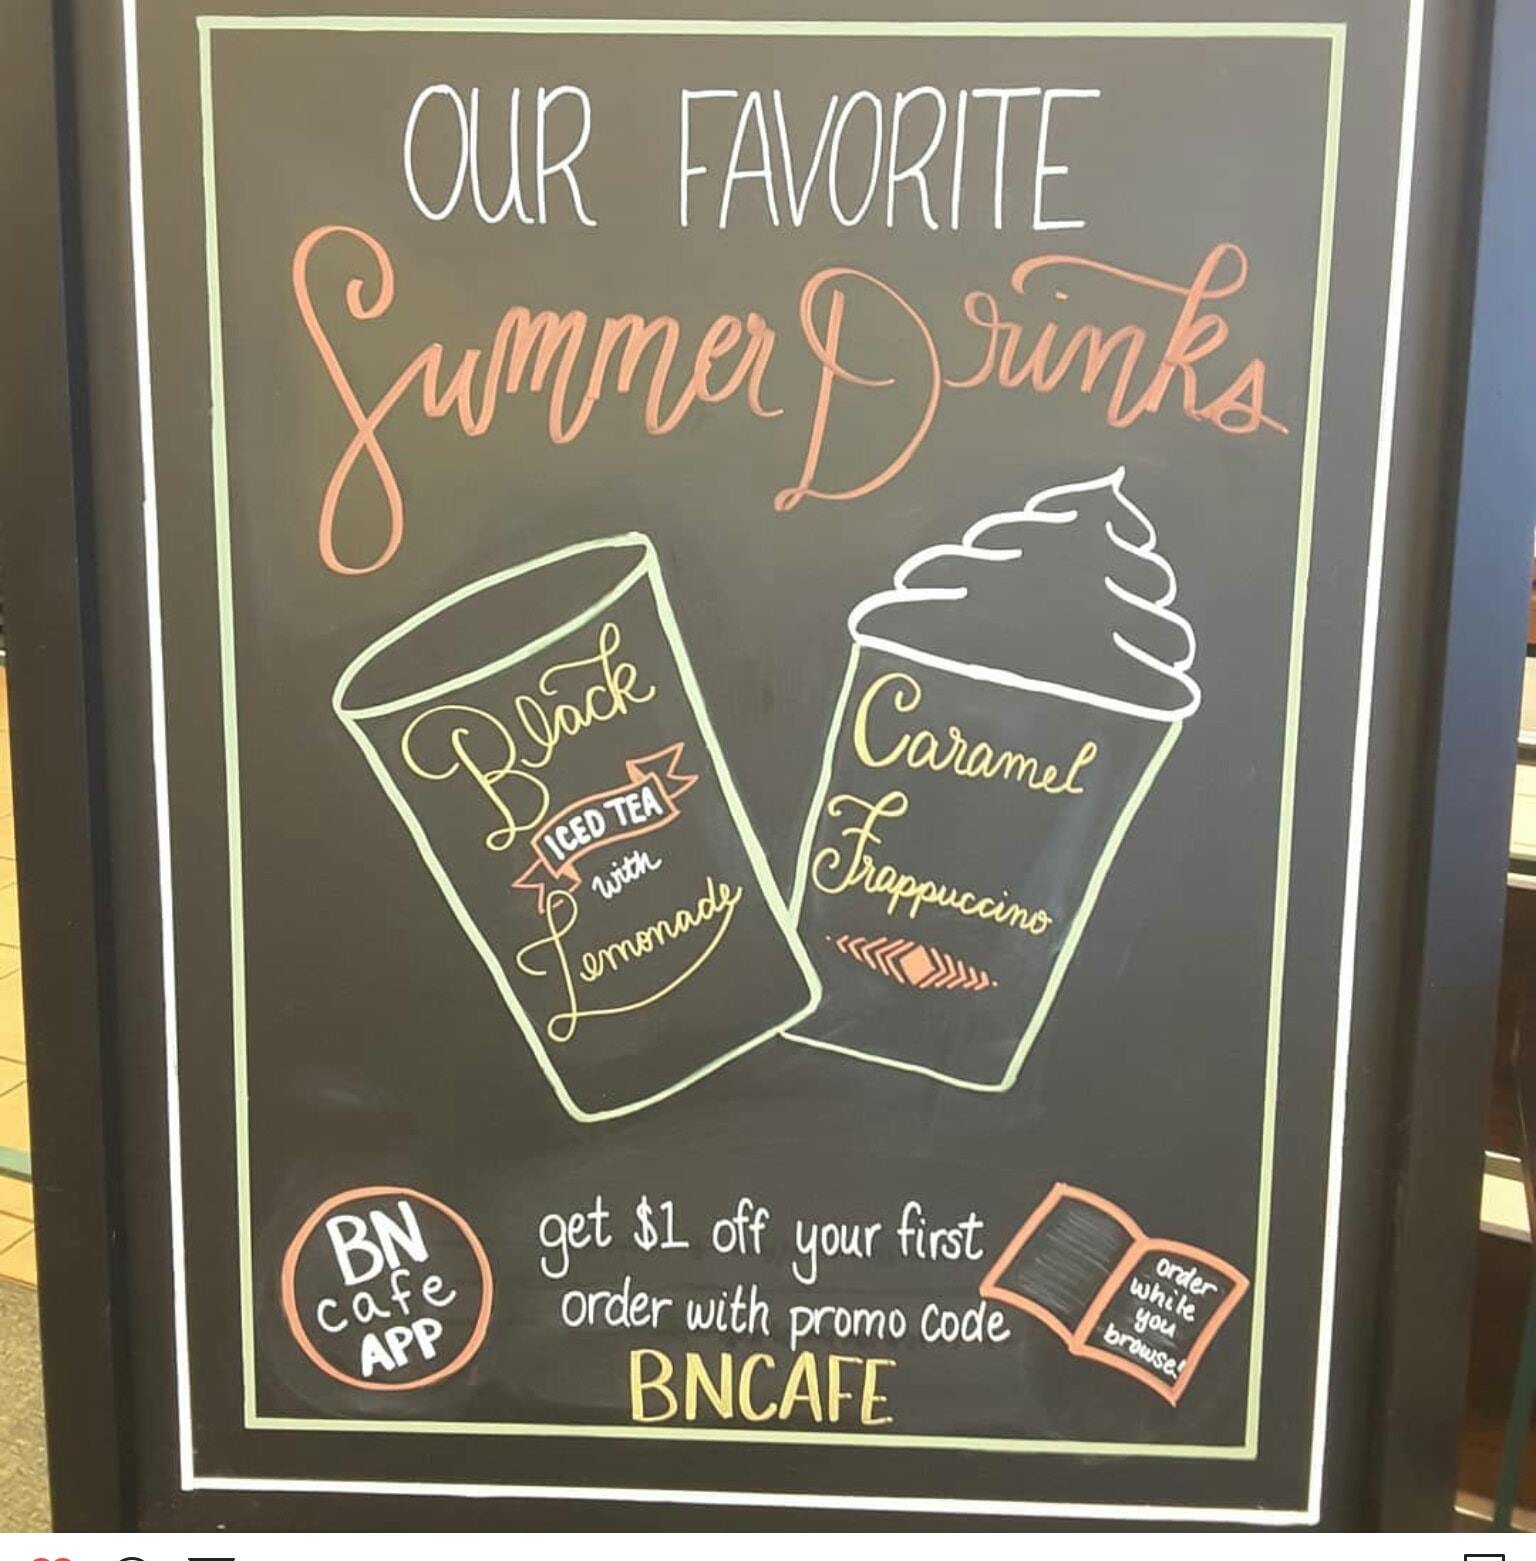 OUR FAVORITE
Summer Drinks
Black
ICED TEA
with
Lemonade
Caramel
Frappuccino
BN
cafe
APP
get $1 off your first
order with promo code
BNCAFE
order
while
you
browse!